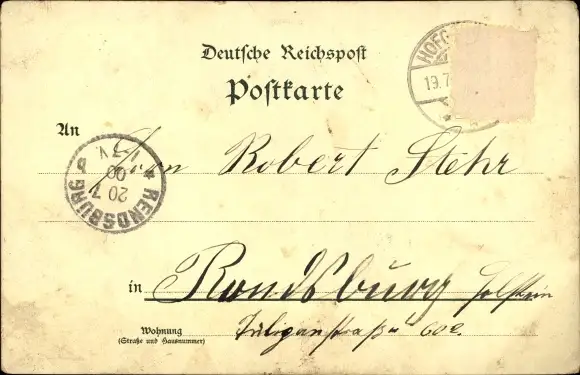 Deutsche Reichspost
Postkarte
HOFG
19.7
An
Herrn Robert Stehr
RENDSBURG
20 7
00
in
Rendsburg Holstein
Wohnung
(Straße und Hausnummer)
60e.